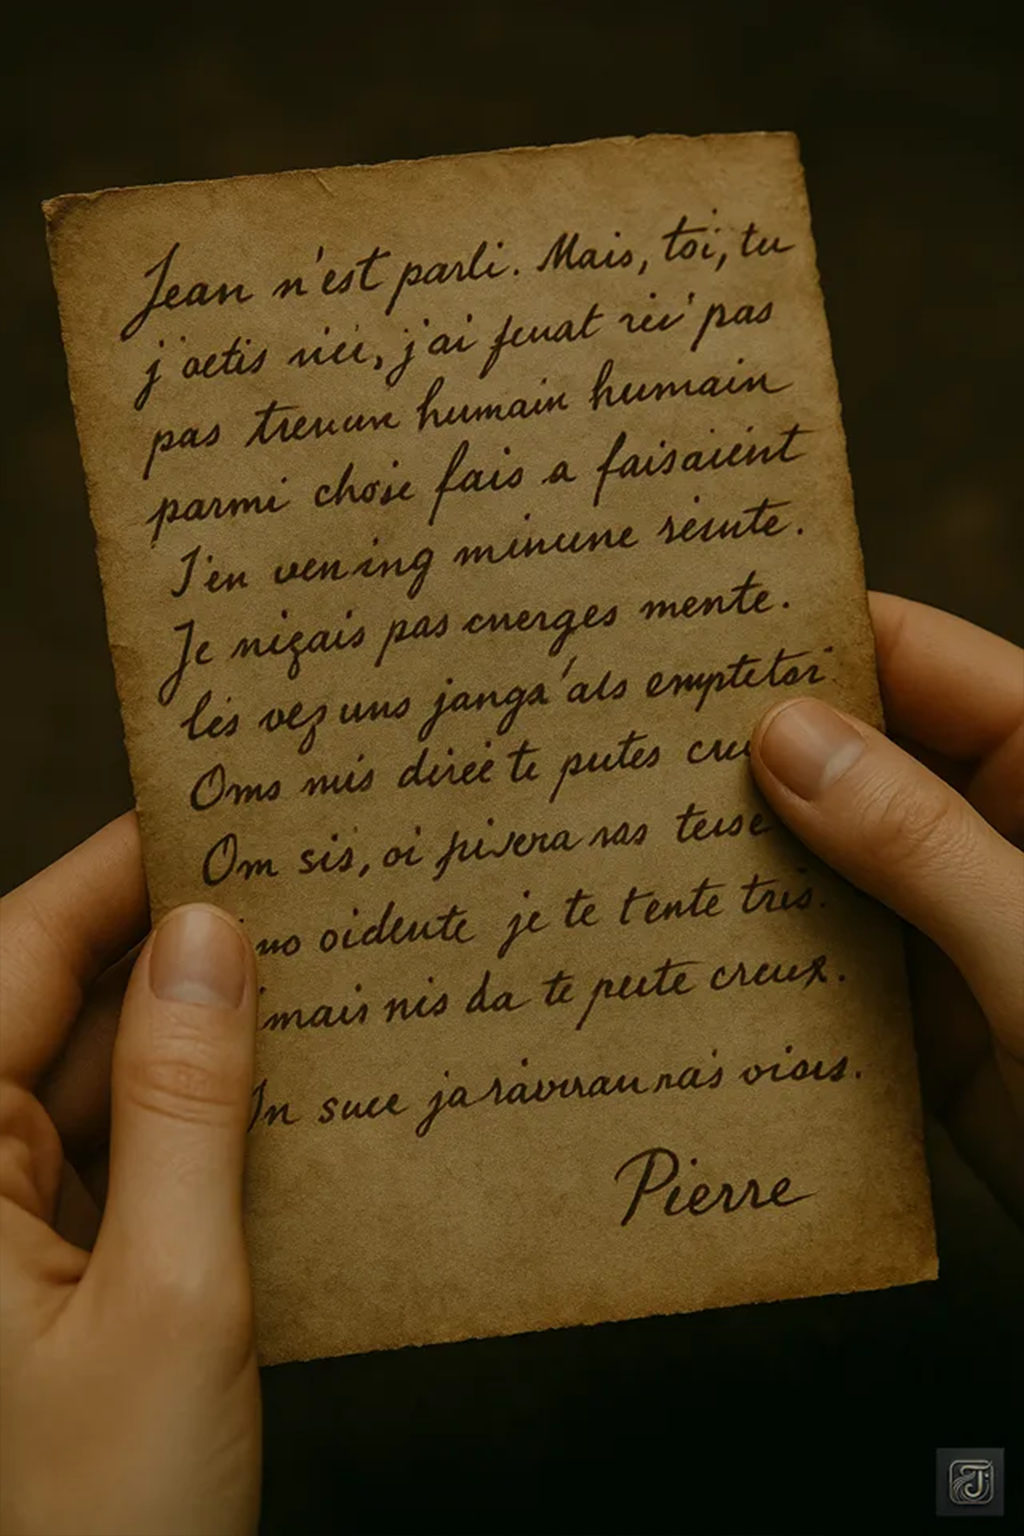 Jean n'est parli. Mais, toi, tu
j'aetis riéi, j'ai feuat réi' pas
pas treucur humain humain
parmi chose fais a faisaient
J'en vening minune seinte.
Je niçais pas cnerges mente.
lés vez uns janga'als emptetoi
Oms mis direé te putes
Om sis, oi pivera nas teuse
oidente je te t'ente tris.
mais nis da te peute creux.
suce ja
Pierre